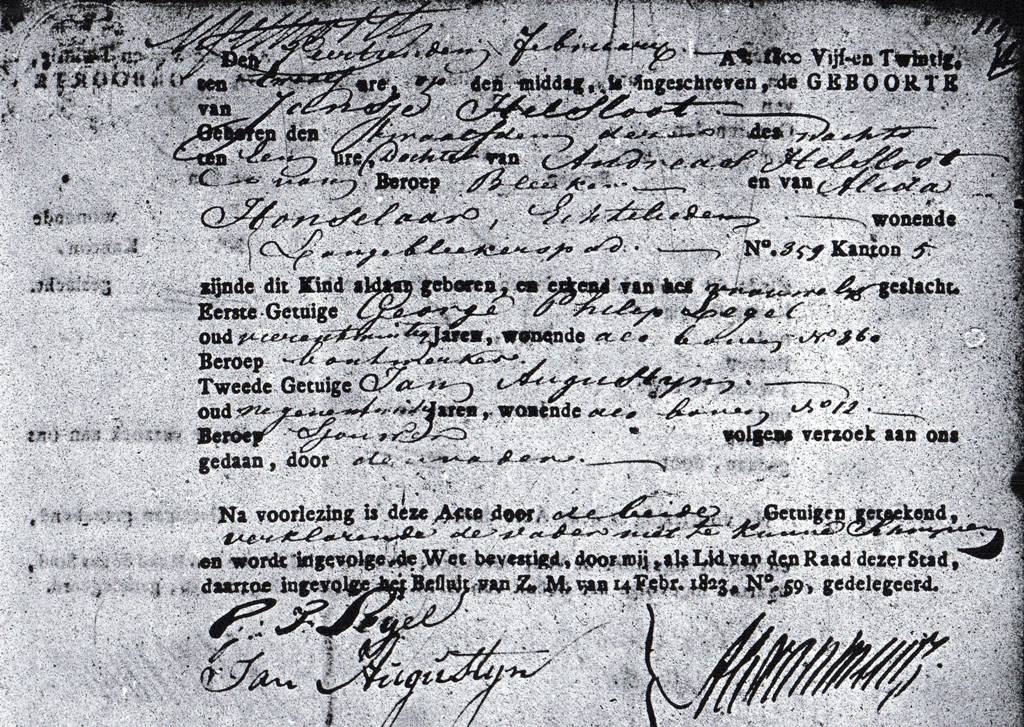 Den Veertienden February A° 1800 Vijf-en Twintig,
ten ure, op den middag, is ingeschreven, de GEBOORTE
van Jansje Helsloot
Geboren den twaalfden dezer des nachts
ten een ure, Dochter van Andreas Helsloot
van Beroep Bleeker en van Alida
Honselaar, Echtelieden wonende
Langebleekerspad. N°. 359 Kanton 5
zijnde dit Kind aldaar geboren, en erkend van het vrouwelyk geslacht.
Eerste Getuige George Philip Segel
oud vierentwintig Jaren, wonende als boven N° 360
Beroep bontwerker.
Tweede Getuige Jan Augustyn.
oud negenentwintig Jaren, wonende als boven N° 12.
Beroep Sjouwer volgens verzoek aan ons
gedaan, door den vader.
Na voorlezing is deze Acte door de beide Getuigen geteekend,
verklarende de vader niet te kunne Schryven
en wordt ingevolge de Wet bevestigd, door mij, als Lid van den Raad dezer Stad,
daartoe ingevolge het Besluit van Z. M. van 14 Febr. 1823, N°. 59, gedelegeerd.
Jan Augustyn